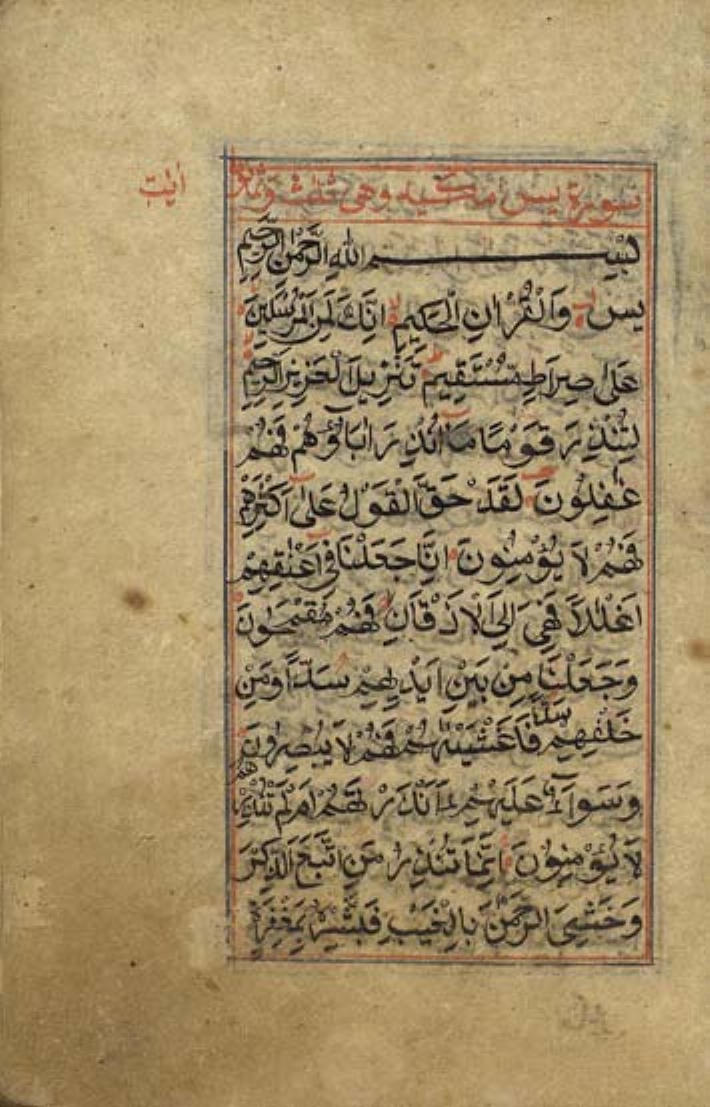 سورة يس مكية وهي ثلث وثمانون
ايت
بسم الله الرحمن الرحيم
يس وَالْقُرْاٰنِ الْحَكِيمِ اِنَّكَ لَمِنَ الْمُرْسَلِينَ
عَلٰى صِرَاطٍ مُسْتَقِيمٍ تَنْزِيلَ الْعَزِيزِ الرَّحِيمِ
لِتُنْذِرَ قَوْمًا مَا اُنْذِرَ اٰبَاؤُهُمْ فَهُمْ
غٰفِلُونَ لَقَدْ حَقَّ الْقَوْلُ عَلٰى اَكْثَرِهِمْ
فَهُمْ لَا يُؤْمِنُونَ اِنَّا جَعَلْنَا فِى اَعْنٰقِهِمْ
اَغْلٰلًا فَهِىَ اِلَى الْاَذْقَانِ فَهُمْ مُقْمَحُونَ
وَجَعَلْنَا مِنْ بَيْنِ اَيْدِيهِمْ سَدًّا وَمِنْ
خَلْفِهِمْ سَدًّا فَاَغْشَيْنٰهُمْ فَهُمْ لَا يُبْصِرُونَ
وَسَوَاءٌ عَلَيْهِمْ ءَاَنْذَرْتَهُمْ اَمْ لَمْ تُنْذِرْهُمْ
لَا يُؤْمِنُونَ اِنَّمَا تُنْذِرُ مَنِ اتَّبَعَ الذِّكْرَ
وَخَشِىَ الرَّحْمٰنَ بِالْغَيْبِ فَبَشِّرْهُ بِمَغْفِرَةٍ